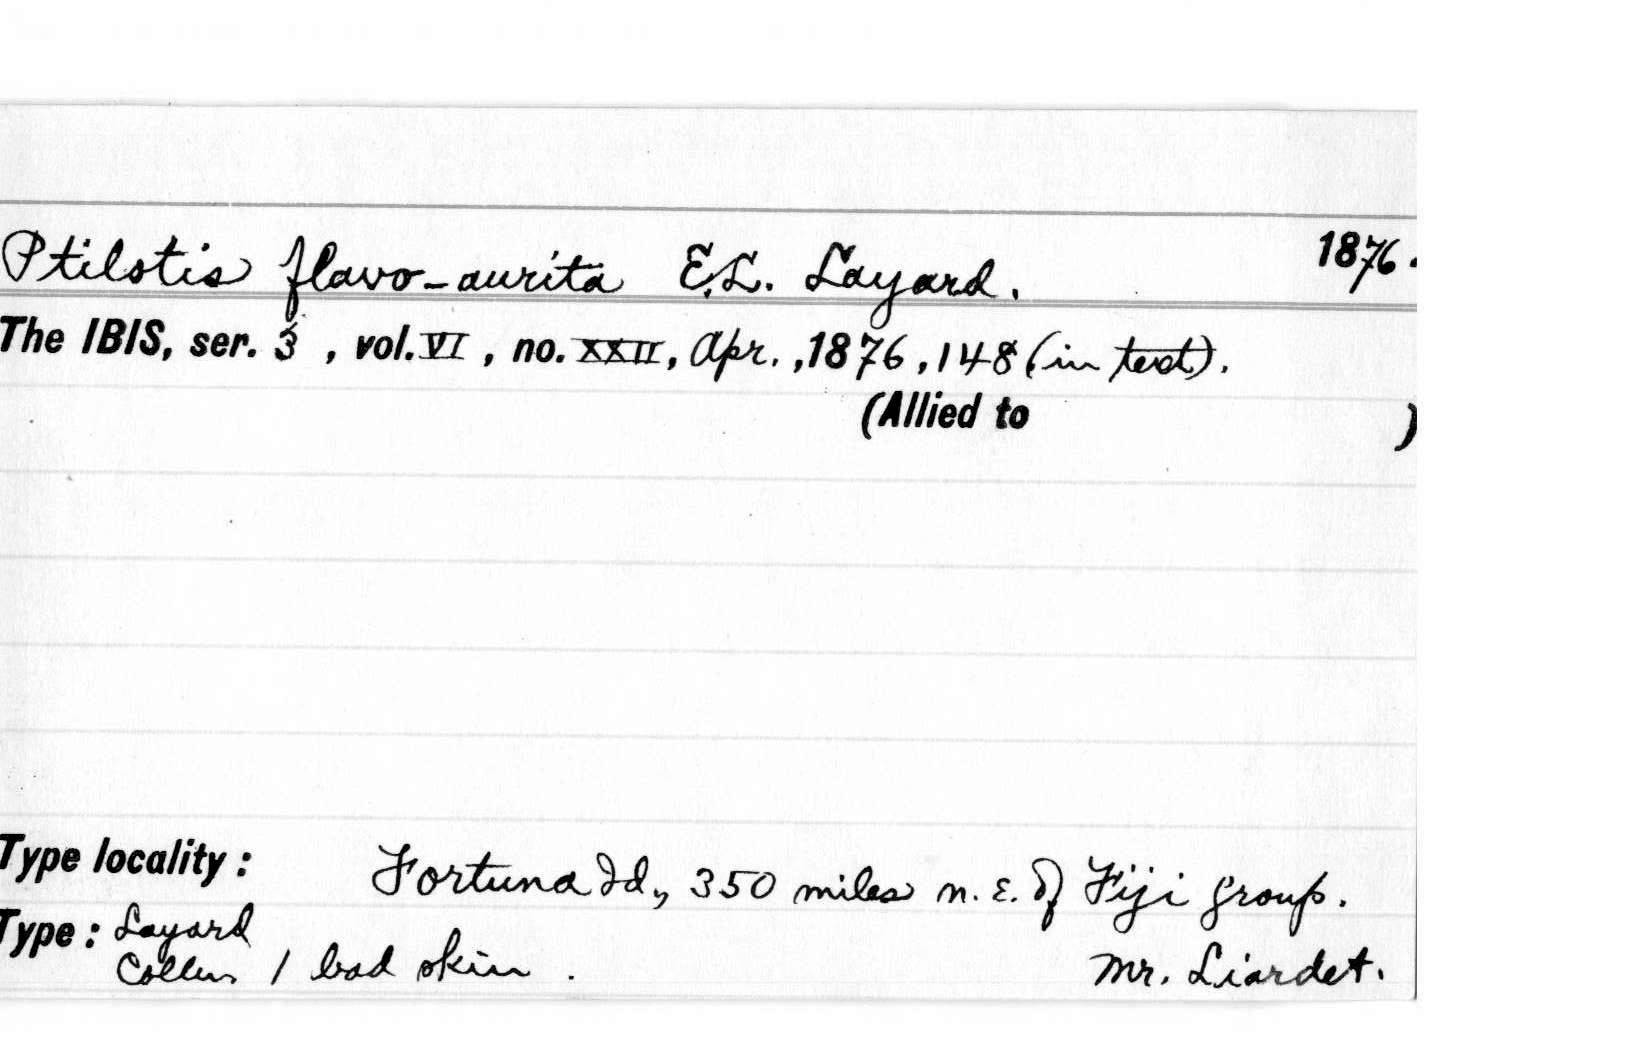 Ptilotis flavo-aurita E.L. Layard. 1876.
The IBIS, ser. 3, vol. VI, no. XXII, Apr., 1876, 148 (in text).
(Allied to )
Type locality: Fortuna Id., 350 miles n.e. of Fiji group.
Type: Layard
Colln. 1 bad skin. Mr. Liardet.